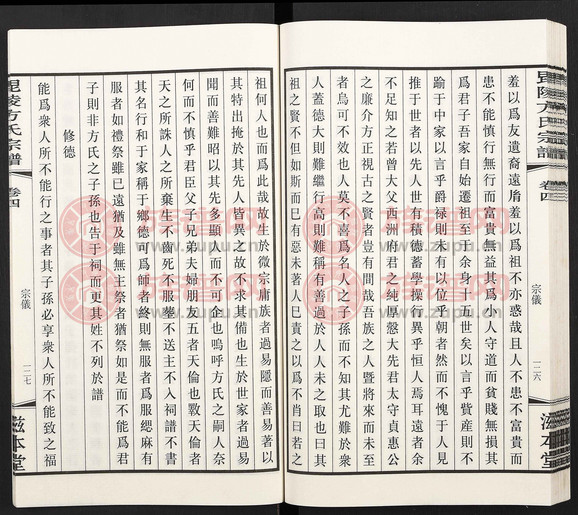 羞以爲友遺裔遠胄羞以爲祖不亦惑哉且人不患不富貴而
患不能慎行無行而富貴無益其爲人人守道而貧賤無損其
爲君子吾家自始遷祖至于余身十五世矣以言乎貲産則不
踰于中家以言乎爵禄則未有以位乎朝者然而不愧于人見
推于世者以先人世有積德蓄學操行異乎恒人焉耳遠者余
不足知之若曾大父西洲府君之純厚愨大先君太守貞惠公
之廉介方正視古之賢者豈有間哉吾族之人暨將來而未至
者烏可不效也人莫不喜爲名人之子孫而不知其尤難於衆
人蓋德大則難繼行高則難稱有善過於人人未之取也曰其
祖之賢不但如斯而已有惡未著人已責之以爲不肖曰若之
宗儀
一二六
毘陵方氏宗譜
卷四
滋本堂
祖何人也而爲此哉故生於微宗庸族者過易隱而善易著以
其特出掩於其先人皆異之故不求其備也生於世家者過易
聞而善難昭以其先多顯人而不可企也嗚呼方氏之嗣人奈
何而不慎乎君臣父子兄弟夫婦朋友五者天倫也斁天倫者
天之所誅人之所棄生不齒死不服葬不送主不入祠譜不書
其名行和于家稱于鄉德可爲師者終則無服者爲服緦麻有
服者如禮祭雖已遠猶及雖無主祭者猶祭如是而不能爲君
子則非方氏之子孫也告于祠而更其姓不列於譜
修德
能爲衆人所不能行之事者其子孫必享衆人所不能致之福
宗儀
一二七
毘陵方氏宗譜
卷四
滋本堂
www.zupu.cn
www.zupu.cn